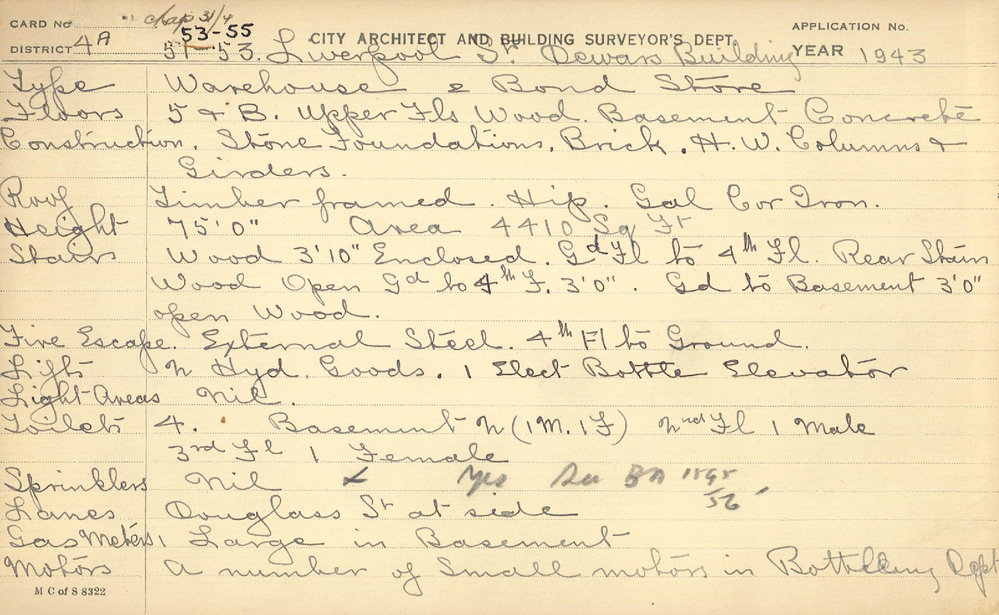 CARD No
chap 31/4
DISTRICT 4A
53-55
CITY ARCHITECT AND BUILDING SURVEYOR'S DEPT.
51-53. Liverpool St. Dewars Building
APPLICATION No.
YEAR 1943
Type Warehouse & Bond Store
Floors 5 & B. Upper Fls Wood. Basement Concrete
Construction. Stone Foundations. Brick. H.W. Columns &
Girders.
Roof Timber framed. Hip. Gal Cor Iron.
Height 75'0" Area 4410 Sq Ft
Stairs Wood 3'10" Enclosed. Gd Fl to 4th Fl. Rear Stairs
Wood Open Gd to 4th F. 3'0". Gd to Basement 3'0"
open Wood.
Fire Escape. External Steel. 4th Fl to Ground.
Lifts 2 Hyd. Goods. 1 Elect Bottle Elevator
Light Areas Nil.
Toilets 4. Basement 2 (1 M. 1 F) 2nd Fl 1 Male
3rd Fl 1 Female
Sprinklers Nil x Yes See BA 1595
56
Lanes Douglass St at side
Gas Meters 1 Large in Basement
Motors A number of Small motors in Bottling Dept
M C of S 8322